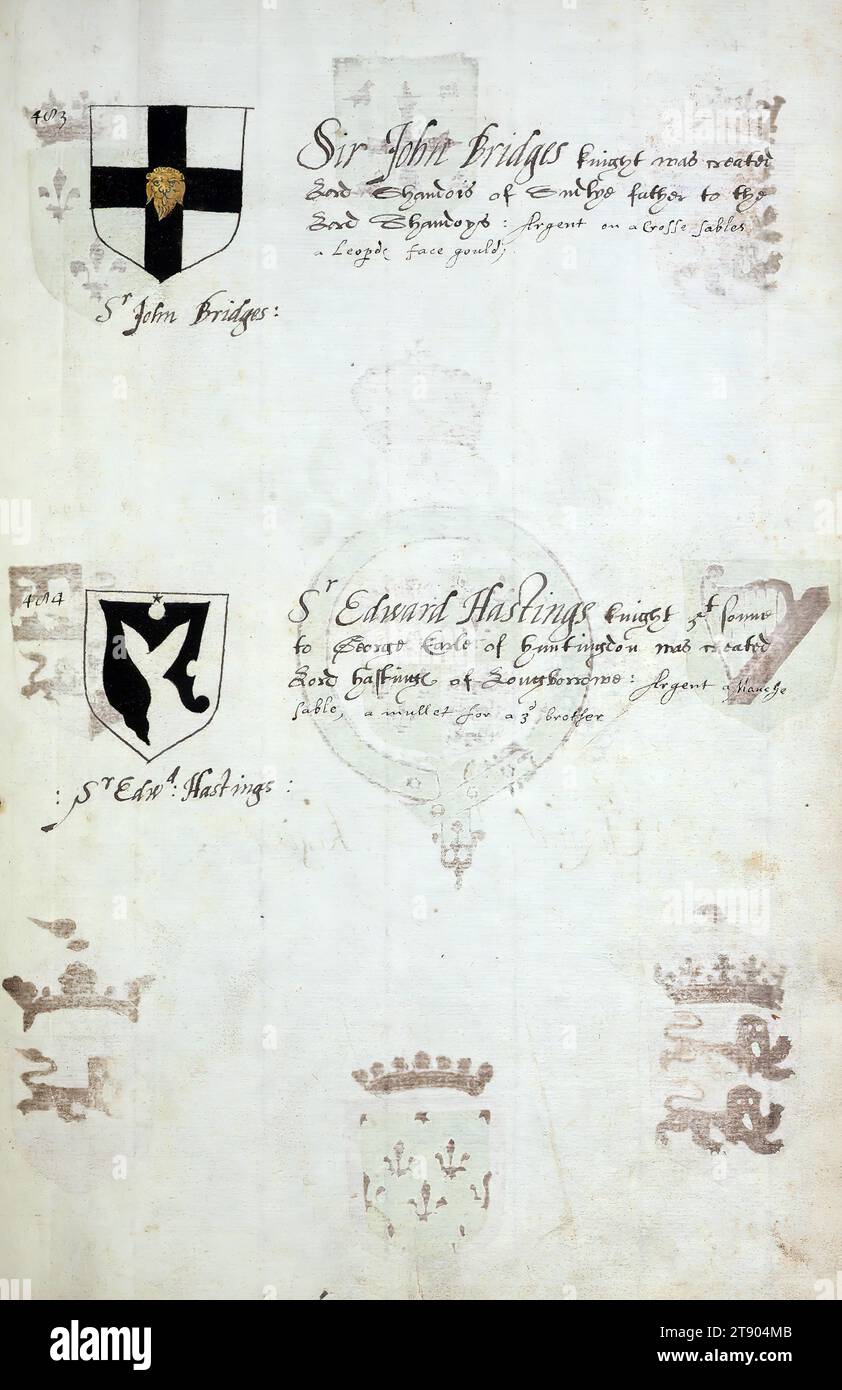 483
Sir John Bridges knight was created
Lord Shandois of Sudlye father to the
Lord Shandoys: Argent on a Crosse sables
a Leopds face gould;
Sr John Bridges:
484
Sr Edward Hastings knight 3t sonne
to George Earle of huntingdon was created
Lord hastings of Lougborrowe: Argent a Manche
sable, a mullet for a 3d brother
: Sr Edwd: Hastings :
alamy
Image ID: 2T904MB
www.alamy.com